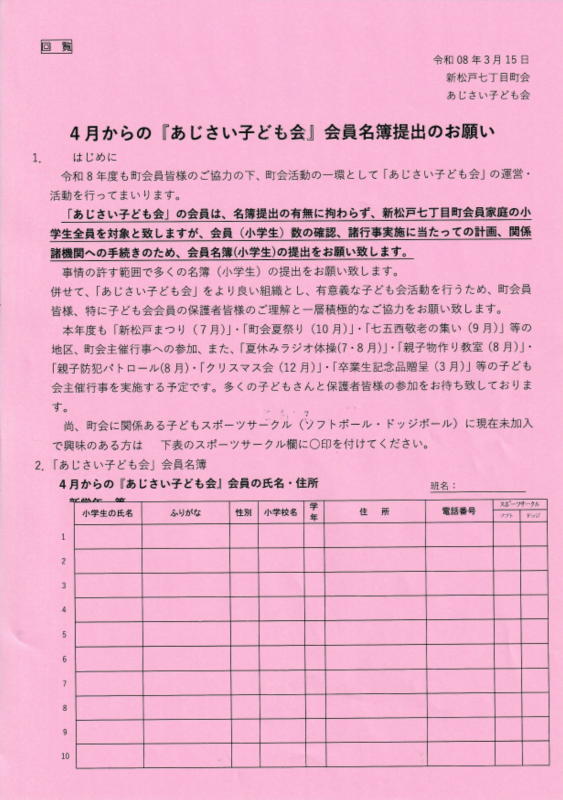 回覧
令和08年3月15日
新松戸七丁目町会
あじさい子ども会
4月からの『あじさい子ども会』会員名簿提出のお願い
1. はじめに
令和8年度も町会員皆様のご協力の下、町会活動の一環として「あじさい子ども会」の運営・
活動を行ってまいります。
「あじさい子ども会」の会員は、名簿提出の有無に拘わらず、新松戸七丁目町会員家庭の小
学生全員を対象と致しますが、会員（小学生）数の確認、諸行事実施に当たっての計画、関係
諸機関への手続きのため、会員名簿(小学生)の提出をお願い致します。
事情の許す範囲で多くの名簿（小学生）の提出をお願い致します。
併せて、「あじさい子ども会」をより良い組織とし、有意義な子ども会活動を行うため、町会員
皆様、特に子ども会会員の保護者皆様のご理解と一層積極的なご協力をお願い致します。
本年度も「新松戸まつり（７月）」・「町会夏祭り（10月）」・「七五西敬老の集い（9月）」等の
地区、町会主催行事への参加、また、「夏休みラジオ体操(7・8月)」・「親子物作り教室（8月）」・
「親子防犯パトロール(8月）・「クリスマス会（12月）」・「卒業生記念品贈呈（3月）」等の子ども
会主催行事を実施する予定です。多くの子どもさんと保護者皆様の参加をお待ち致しておりま
す。
尚、町会に関係ある子どもスポーツサークル（ソフトボール・ドッジボール）に現在未加入
で興味のある方は 下表のスポーツサークル欄に〇印を付けてください。
2.「あじさい子ども会」会員名簿
4月からの『あじさい子ども会』会員の氏名・住所
班名：
小学生の氏名 ふりがな 性別 小学校名 学年 住所 電話番号 スポーツサークル
ソフト ドッジ
1
2
3
4
5
6
7
8
9
10